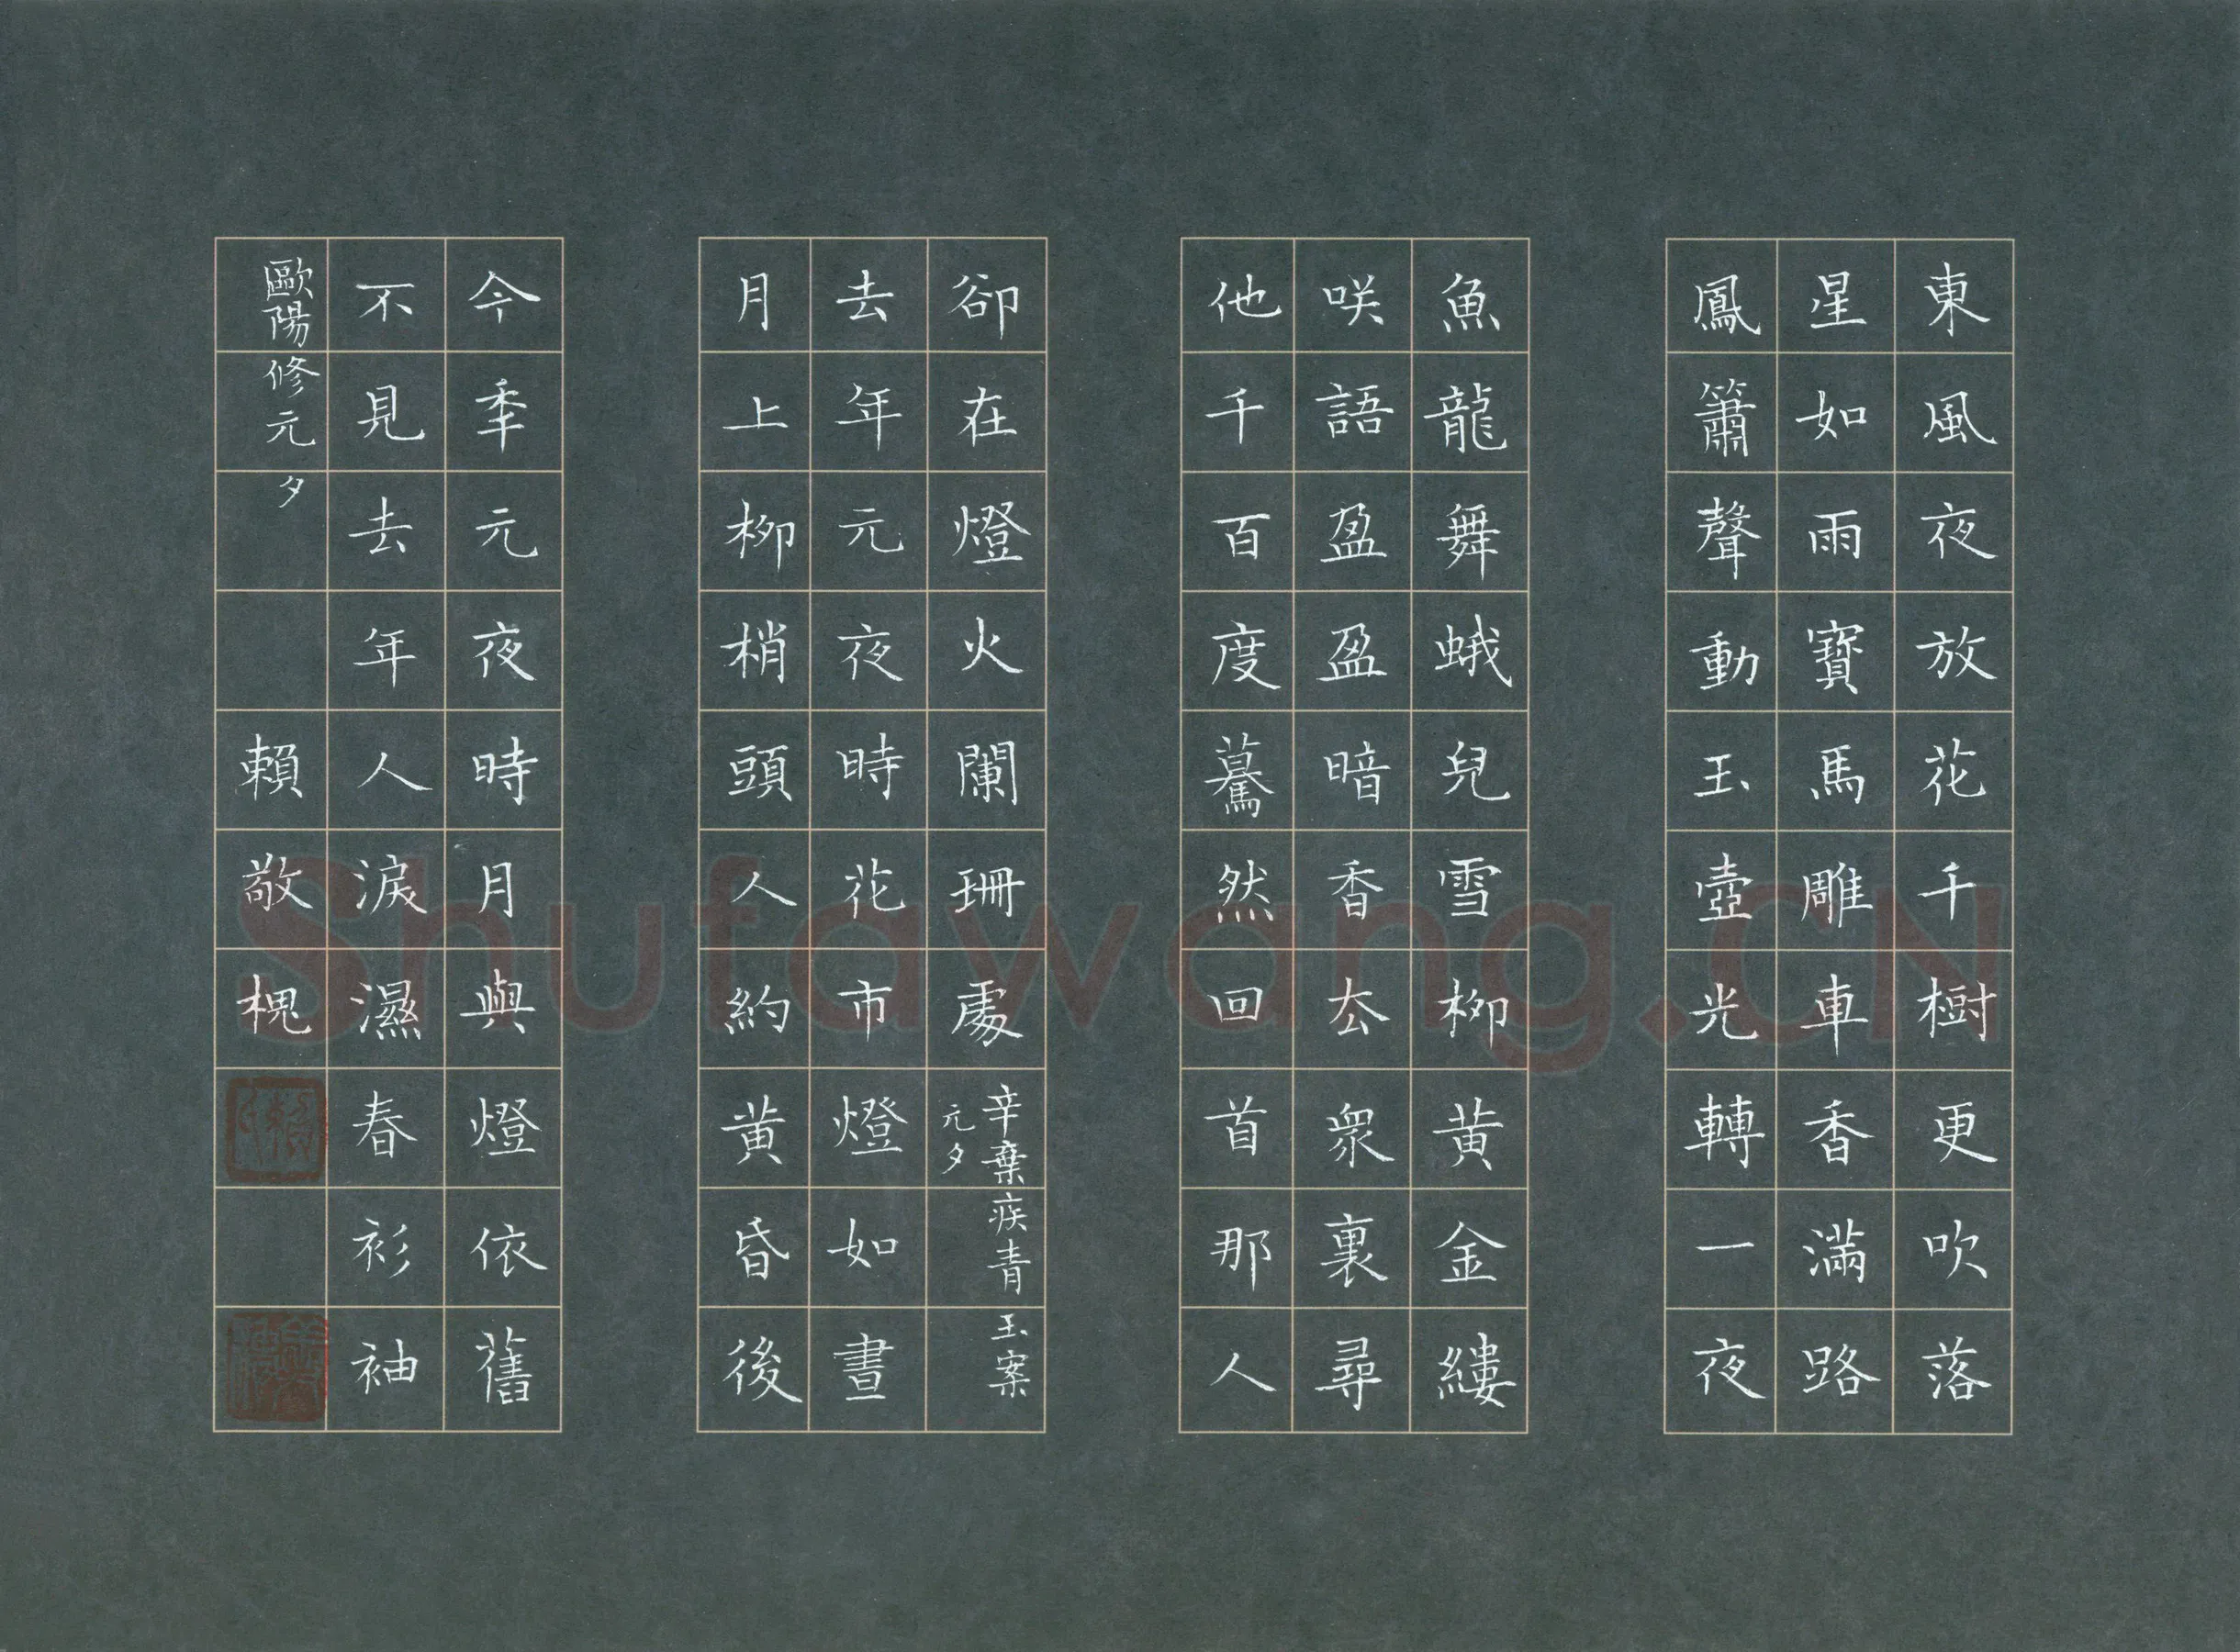 東風夜放花千樹更吹落
星如雨寶馬雕車香滿路
鳳簫聲動玉壺光轉一夜
魚龍舞蛾兒雪柳黃金縷
咲語盈盈暗香厺衆裏尋
他千百度驀然回首那人
卻在燈火闌珊處
辛棄疾青玉案
元夕
去年元夜時花市燈如晝
月上柳梢頭人約黃昏後
今秊元夜時月與燈依舊
不見去年人淚濕春衫袖
歐陽修元夕
賴敬槐
Shufawang.CN